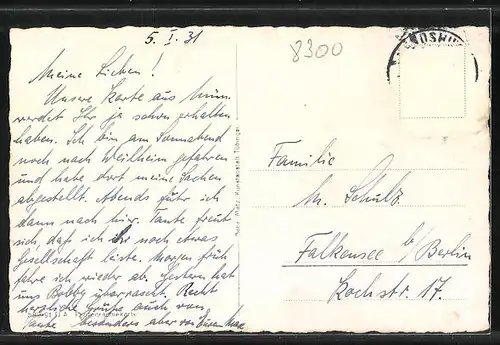 5. I. 31
8300
Meine Lieben!
Unsere Karte aus Münn
werdet Ihr ja schon erhalten
haben. Ich bin am Sonnabend
noch nach Weilheim gefahren
und habe dort meine Sachen
abgestellt. Abends fuhr ich
dann nach hier. Tante freut
sich, daß ich ihr noch etwas
Gesellschaft leiste. Morgen früh
fahre ich wieder ab. Gestern hat
uns Bobby überrascht. Recht
herzliche Grüße auch von
Tante besonders aber von Eurem
Familie
M. Schulz
Falkensee b/Berlin
Kochstr. 17.